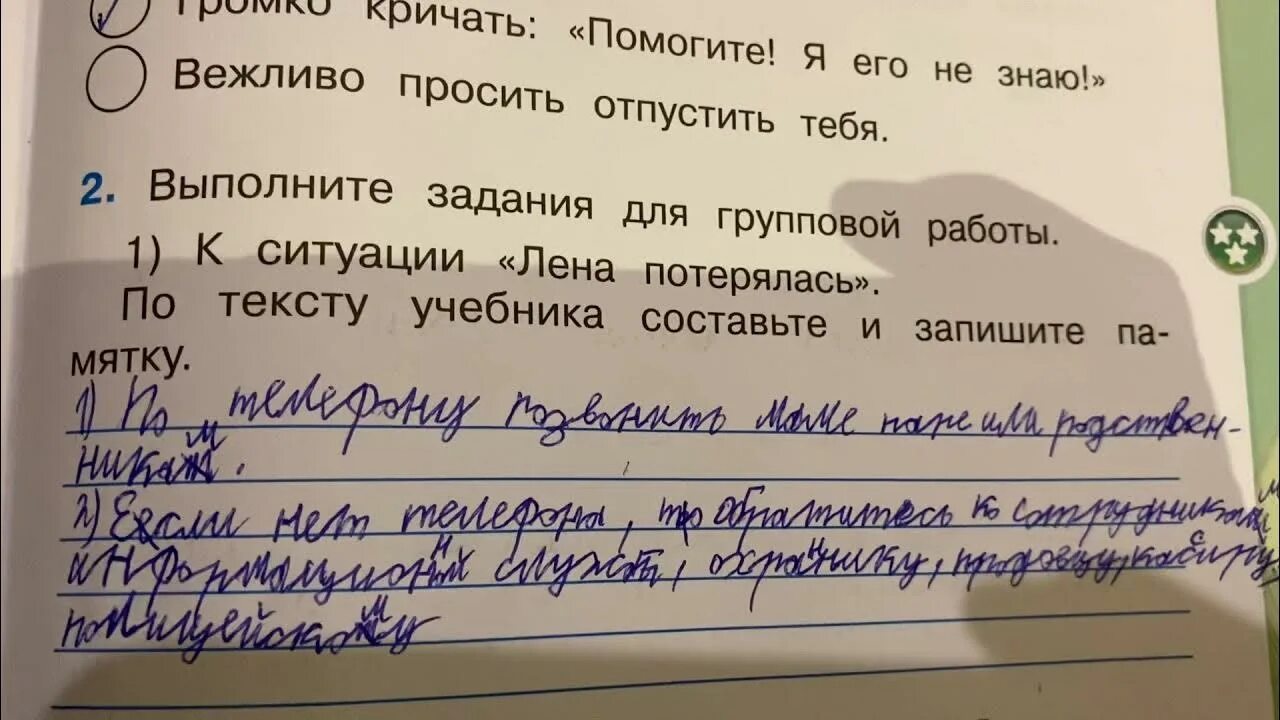 Громко кричать: «Помогите! Я его не знаю!»
Вежливо просить отпустить тебя.
2. Выполните задания для групповой работы.
1) К ситуации «Лена потерялась».
По тексту учебника составьте и запишите па-
мятку.
1) По телефону позвонить маме папе или родствен-
никам.
2) Если нет телефона, то обратитесь к сотрудникам
информационн служб, охраннику, продавцу, кассиру,
полицейскому